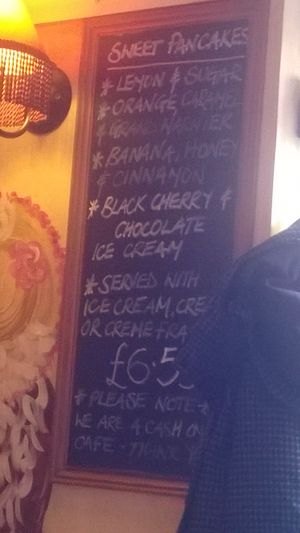 SWEET PANCAKES
* LEMON & SUGAR
* ORANGE, CARAMEL
& GRAND MARNIER
* BANANA, HONEY
& CINNAMON
* BLACK CHERRY &
CHOCOLATE
ICE CREAM
* SERVED WITH
ICE CREAM, CRE
OR CREME FRA
£6.5
* PLEASE NOTE *
WE ARE A CASH ON
CAFE - THANK Y